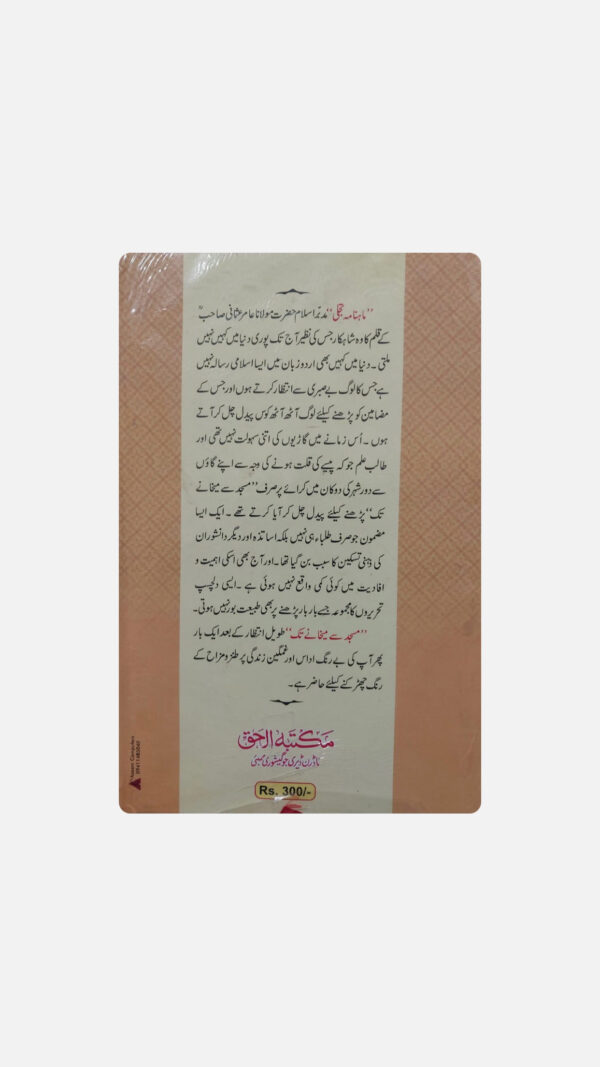 ”ماہنامہ تجلی“ مدبّر اسلام حضرت مولانا عامر عثمانی صاحبؒ
کے قلم کا وہ شاہکار جس کی نظیر آج تک پوری دنیا میں کہیں نہیں
ملتی ۔ دنیا میں کہیں بھی اردو زبان میں ایسا اسلامی رسالہ نہیں
ہے جس کا لوگ بے صبری سے انتظار کرتے ہوں اور جس کے
مضامین کو پڑھنے کیلئے لوگ آٹھ آٹھ کوس پیدل چل کر آتے
ہوں ۔ اُس زمانے میں گاڑیوں کی اتنی سہولت نہیں تھی اور
طالب علم جو کہ پیسے کی قلت ہونے کی وجہ سے اپنے گاؤں
سے دور شہر کی دوکان میں کرائے پر صرف ”مسجد سے میخانے
تک“ پڑھنے کیلئے پیدل چل کر آیا کرتے تھے ۔ ایک ایسا
مضمون جو صرف طلباء ہی نہیں بلکہ اساتذہ اور دیگر دانشوران
کی ذہنی تسکین کا سبب بن گیا تھا ۔ اور آج بھی اسکی اہمیت و
افادیت میں کوئی کمی واقع نہیں ہوئی ہے ۔ ایسی دلچسپ
تحریروں کا مجموعہ جسے بار بار پڑھنے پر بھی طبیعت بور نہیں ہوتی۔
”مسجد سے میخانے تک“ طویل انتظار کے بعد ایک بار
پھر آپ کی بے رنگ اداس اور غمگین زندگی پر طنز و مزاح کے
رنگ چھڑکنے کیلئے حاضر ہے۔
مکتبہ الحق
ماڈرن ڈیری جوگیشوری ممبئی
Rs. 300/-